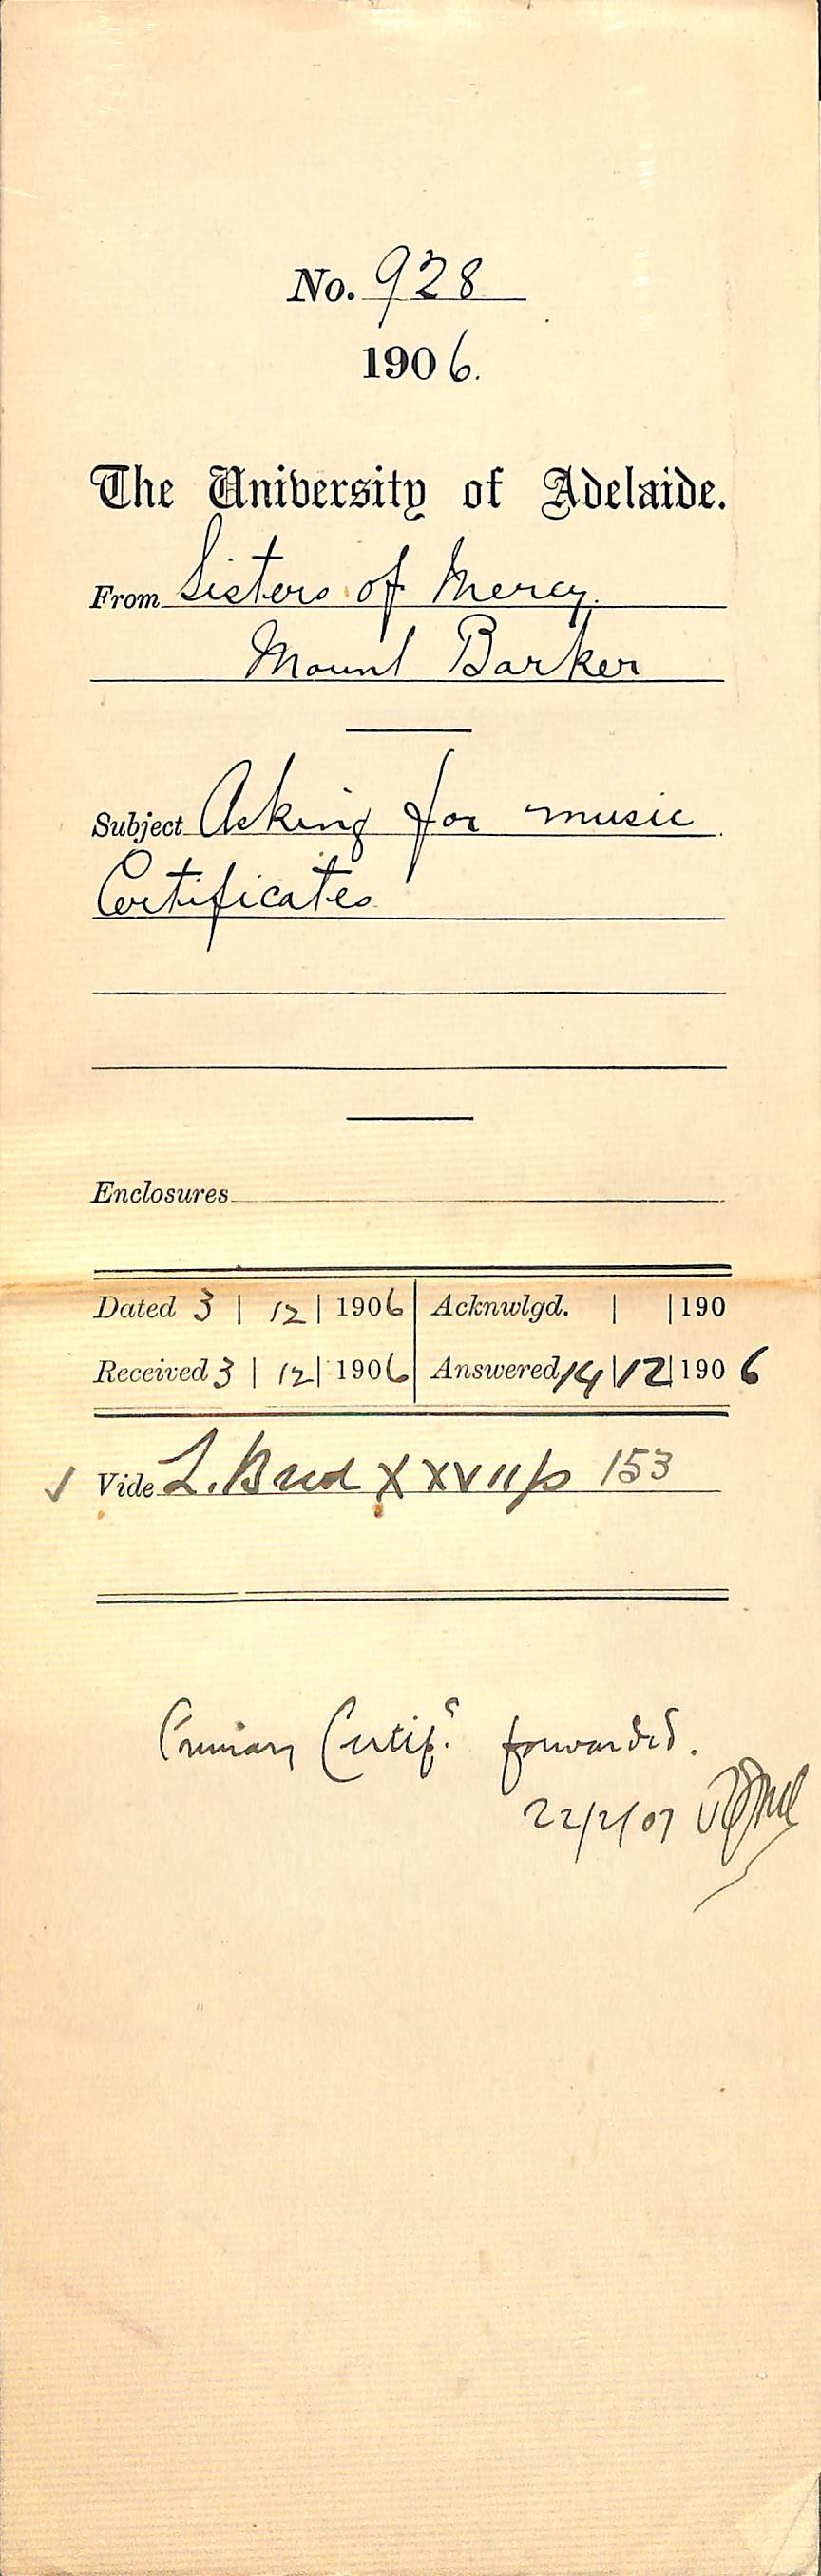 No. 928
1906.
The University of Adelaide.
From Sisters of Mercy.
Mount Barker
Subject Asking for music
Certificates
Enclosures
Dated 3 | 12 | 1906 Acknwlgd. | | 190
Received 3 | 12 | 1906 Answered 14 | 12 | 1906
✓ Vide L. Book XXVII p 153
Primary Certifs. forwarded.
22/2/07